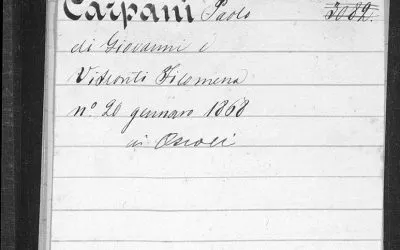 Carpani Paolo 3082
di Giovanni e
Visconti Filomena
n° 20 gennaro 1868
in